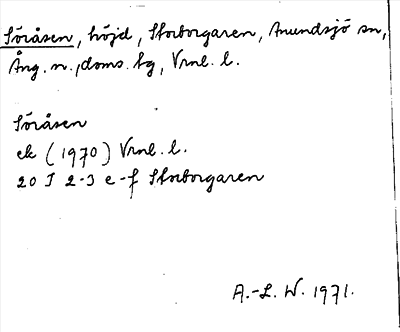 Söråsen, höjd, Storborgaren, Anundsjö sn,
Ång. n., doms. hg, Vrnl. l.
Söråsen
ek (1970) Vrnl. l.
20 I 2-3 e-f Storborgaren
A.-L. W. 1971.